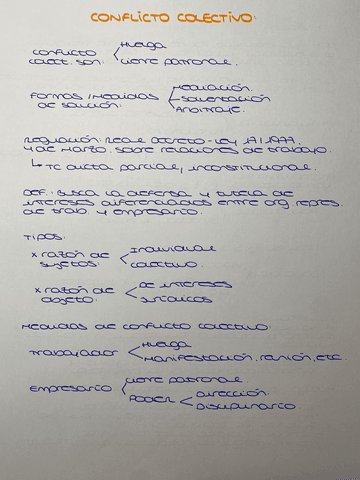 CONFLICTO COLECTIVO:
CONFLICTO COLECT. SON: < HUELGA
CIERRE PATRONAL.
FORMAS / MEDIDAS DE SOLUCIÓN: < MEDIACIÓN
CONCILIACIÓN
ARBITRAJE.
REGULACIÓN: REAL DECRETO-LEY 17/1977,
4 DE MARZO. SOBRE RELACIONES DE TRABAJO.
↳ TC DICTA PARCIAL, INCONSTITUCIONAL.
DEF.: BUSCA LA DEFENSA Y TUTELA DE
INTERESES DIFERENCIADOS ENTRE ORG REPRES.
DE TRAB Y EMPRESARIO.
TIPOS:
X RAZÓN DE SUJETOS: < INDIVIDUAL
COLECTIVO.
X RAZÓN DE OBJETO: < DE INTERESES
JURÍDICOS
MEDIDAS DE CONFLICTO COLECTIVO:
TRABAJADOR < HUELGA
MANIFESTACIÓN, REUNIÓN, ETC.
EMPRESARIO < CIERRE PATRONAL
PODER < DIRECCIÓN.
DISCIPLINARIO.